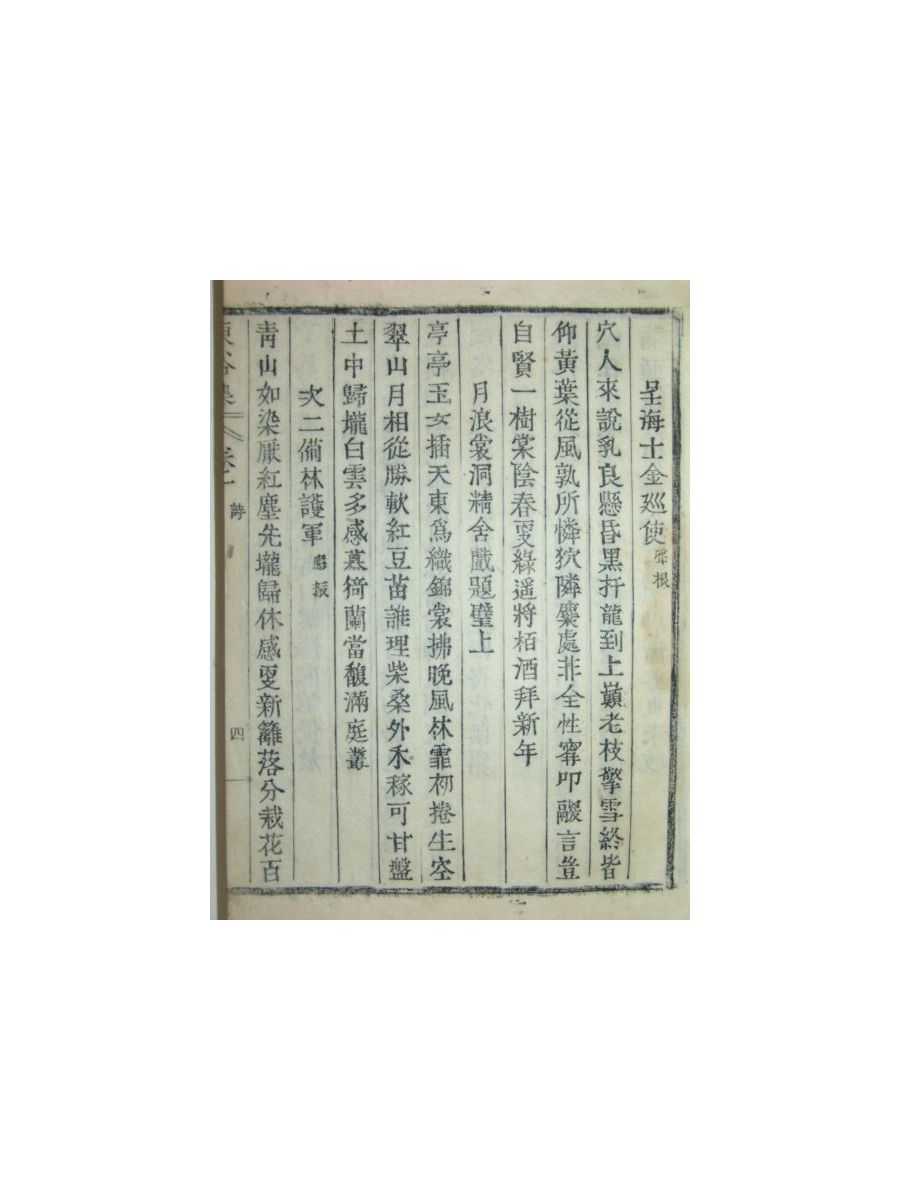 呈海士金巡使聲根
穴人來說乳良懸昏黑扞龍到上巓老枝擎雪終皆
仰黃葉從風孰所憐狄隣麋處非全性窜叩嘐言豈
自賢一樹棠陰春更綠遥將栢酒拜新年
月浪裳洞精舍戱題壁上
亭亭玉女插天東爲織錦裳拂晩風林霏初捲生空
翠山月相從勝軟紅豆苗誰理柴桑外禾稼可甘盤
土中歸壠白雲多感慕猗蘭當馥滿庭叢
次二備林護軍 振
靑山如染厭紅塵先壠歸休感更新籬落分栽花百
東谷集 卷 詩 四